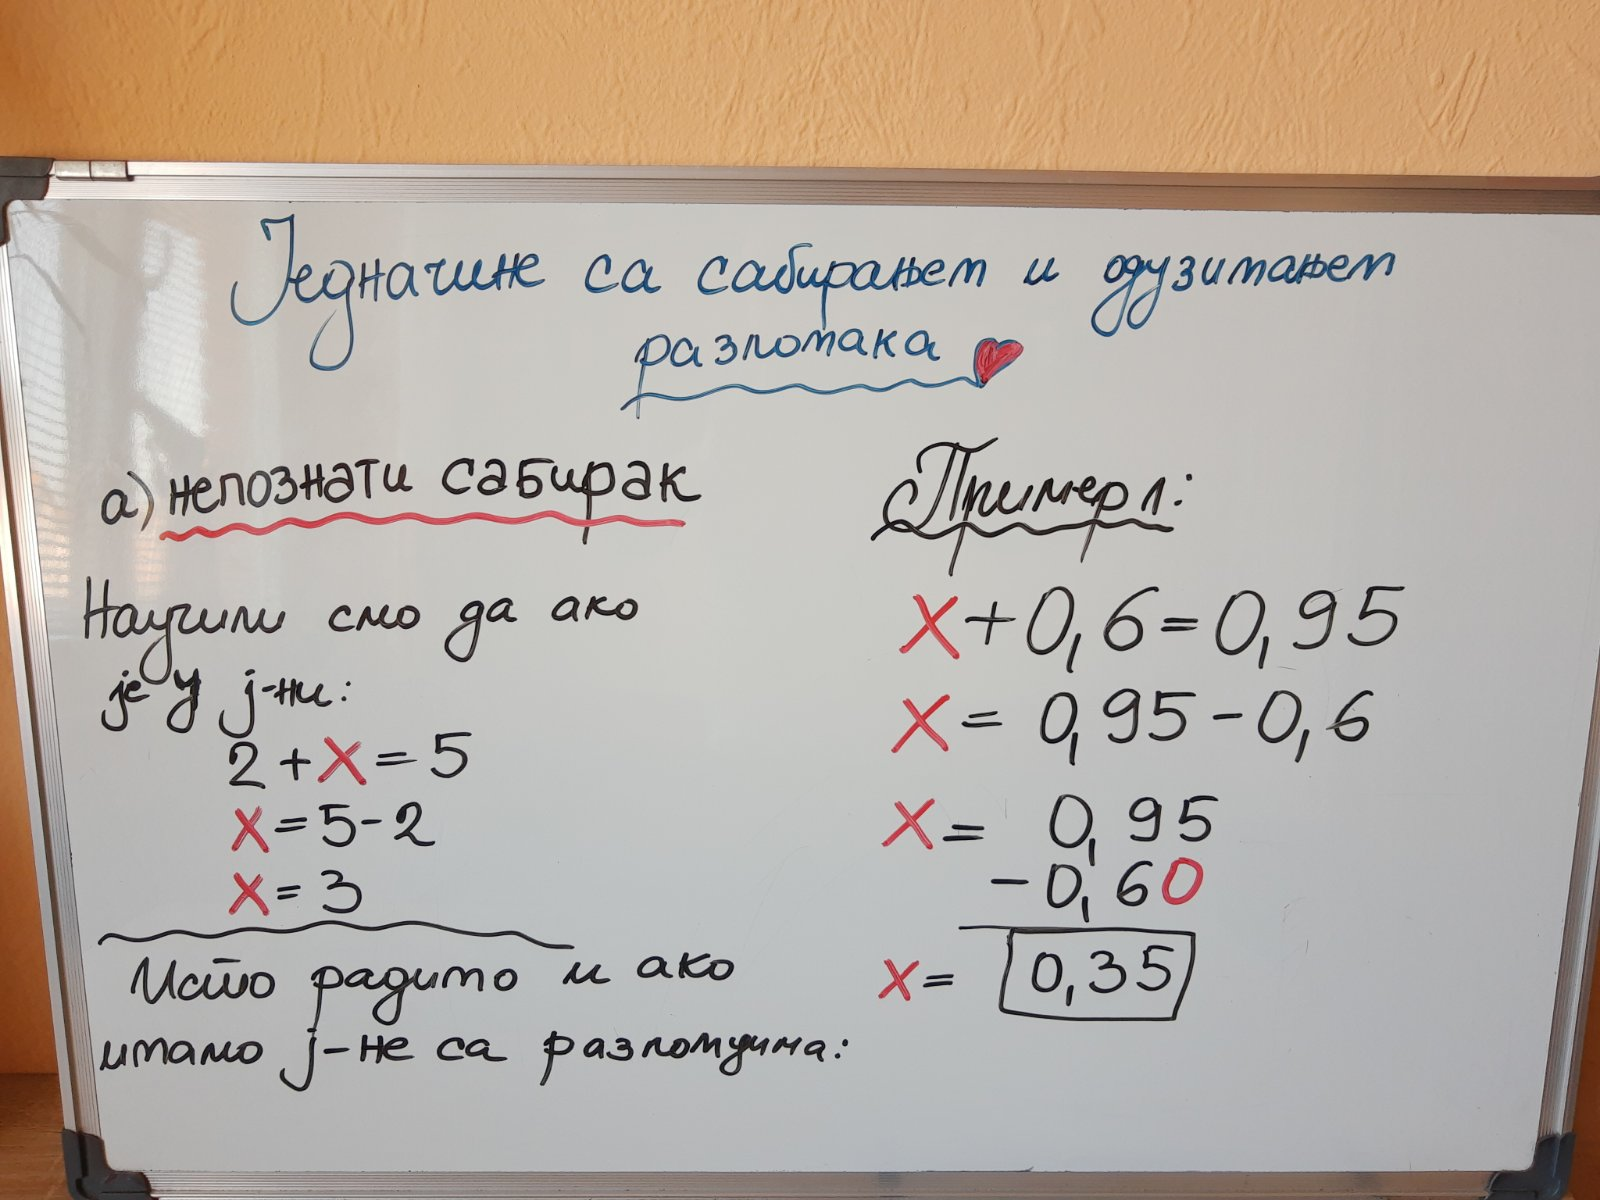 Једначине са сабирањем и одузимањем
разломака
а) непознати сабирак
Научили смо да ако
је у ј-ни:
2 + x = 5
x = 5 - 2
x = 3
Исто радимо и ако
имамо ј-не са разломцима:
Пример 1:
x + 0,6 = 0,95
x = 0,95 - 0,6
x = 0,95
- 0,60
x = 0,35